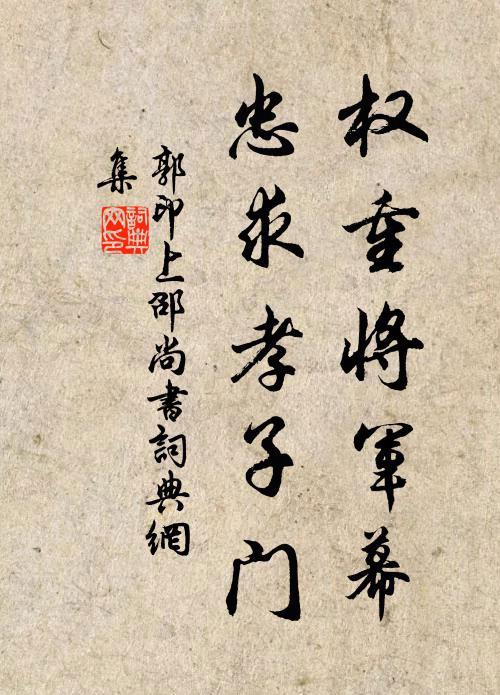 权重将军幕
忠求孝子门
郭印上邵尚書詞典網
集
詞典网印